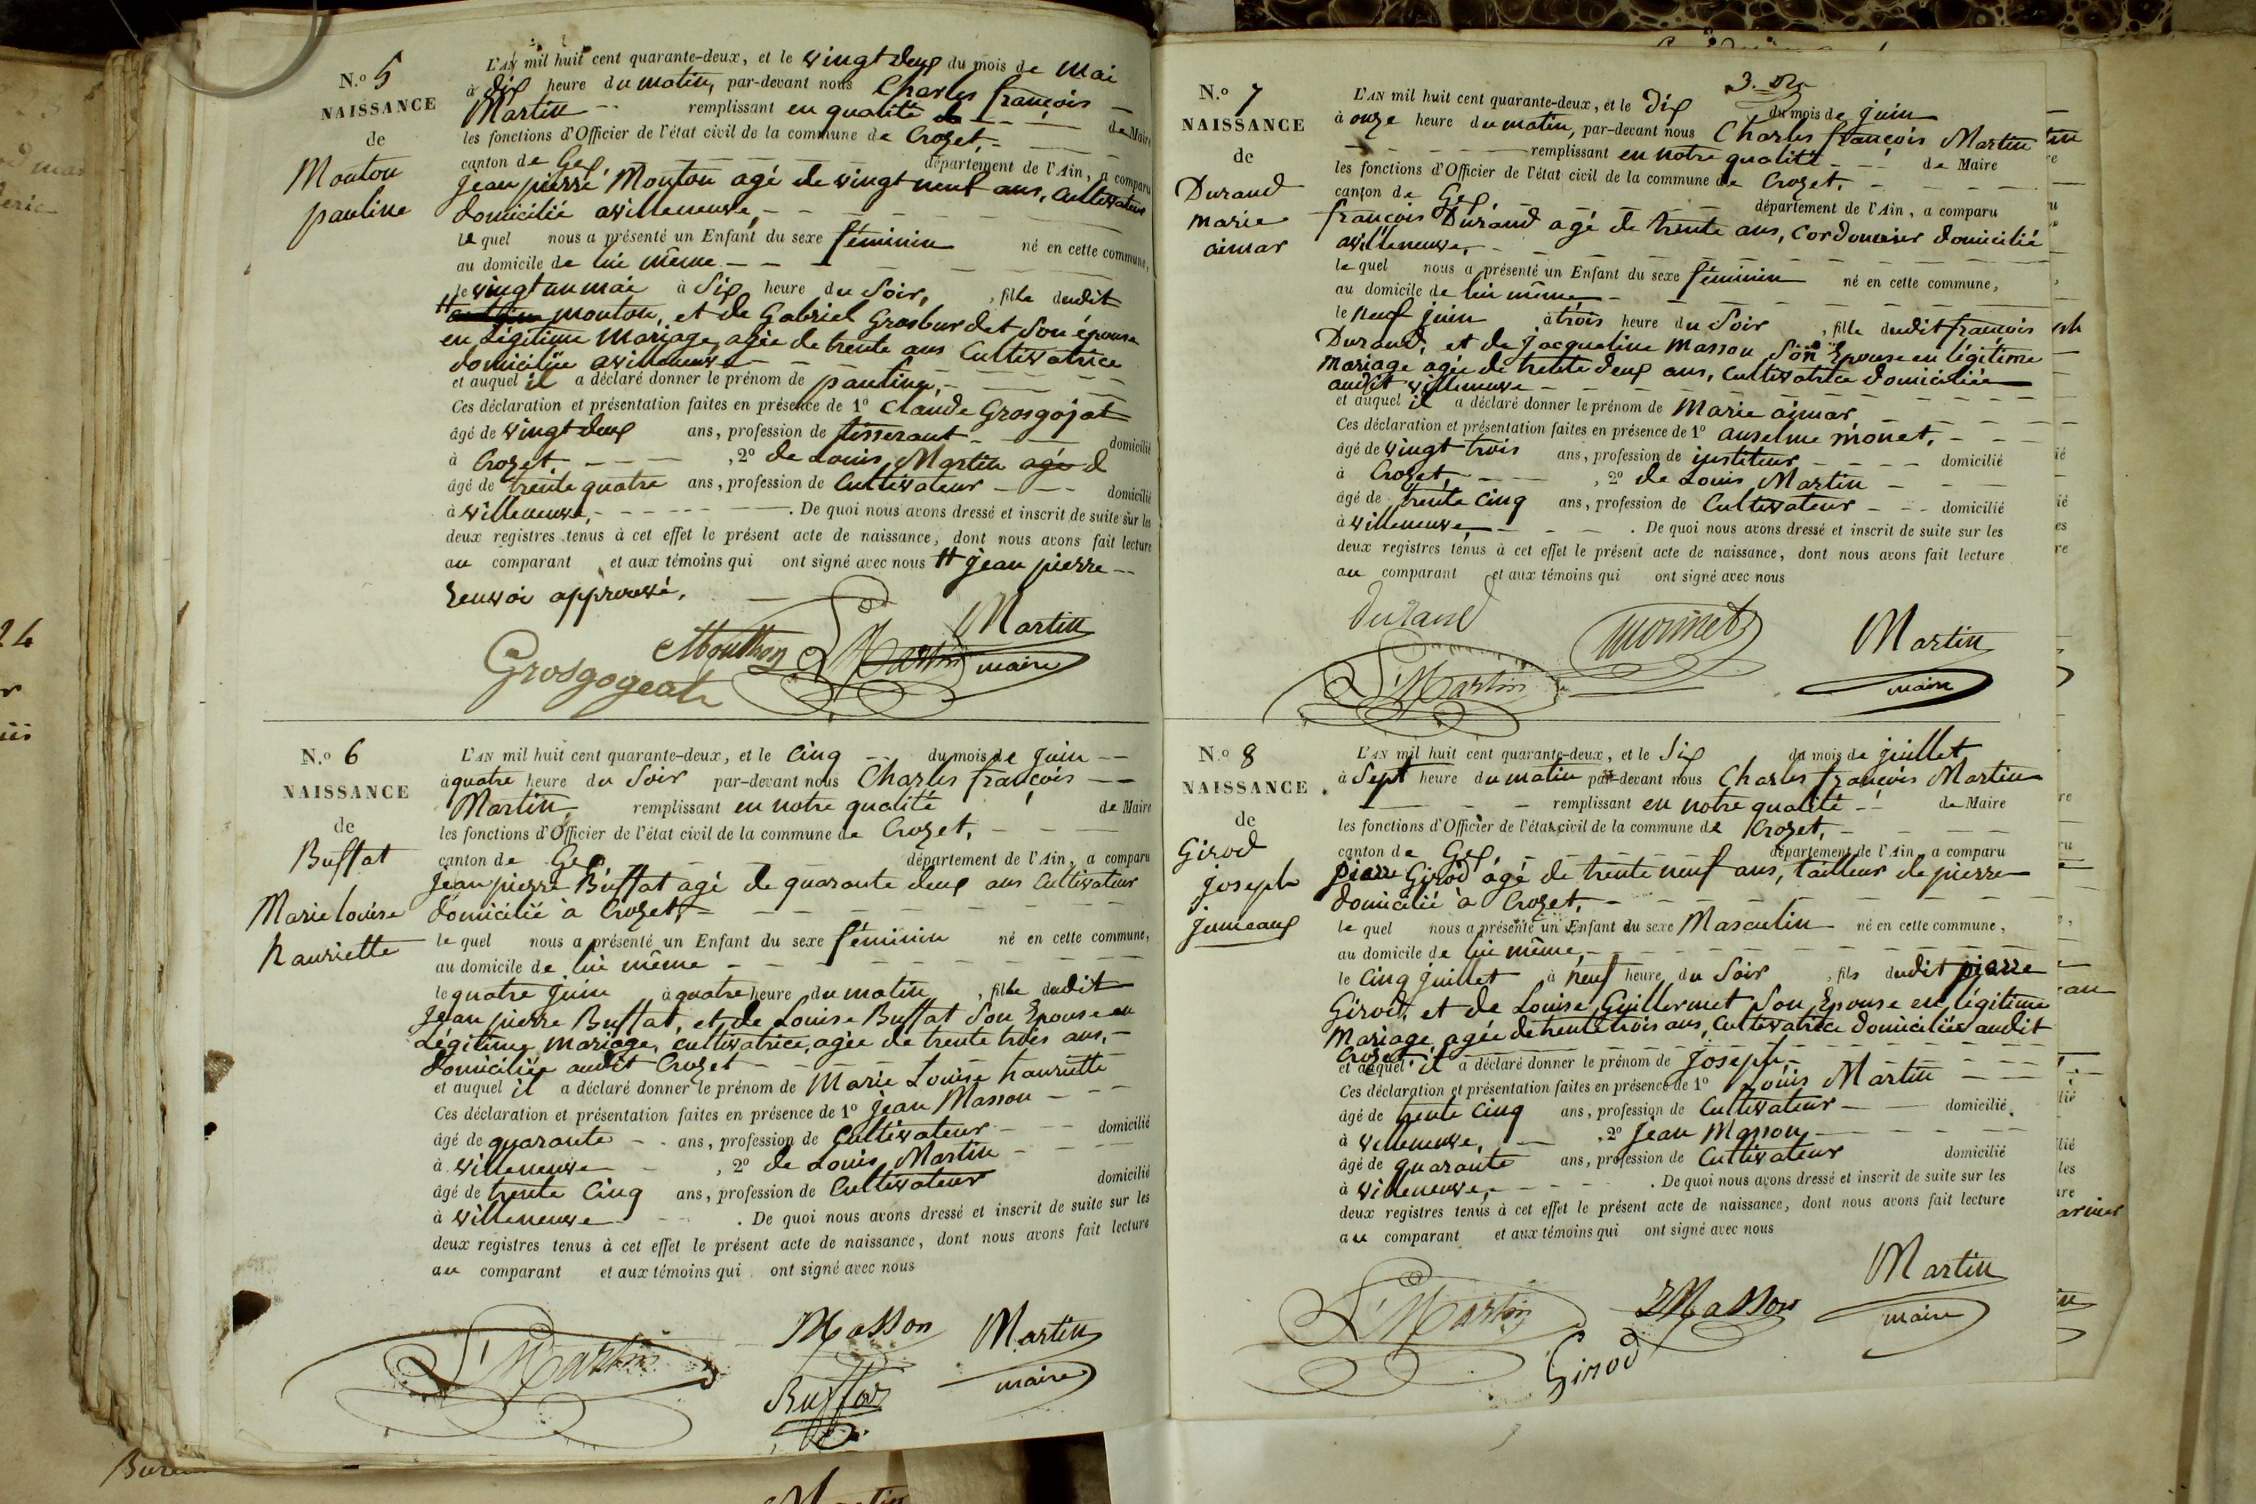 N.o 5
NAISSANCE
de
Mouton
pauline
L'AN mil huit cent quarante-deux, et le vingt deux du mois de Mai
à dix heure du matin, par-devant nous Charles françois
Martin remplissant en qualité de Maire
les fonctions d'Officier de l'état civil de la commune de Crozet,
canton de Gex, département de l'Ain, a comparu
Jean pierre Mouton agé de vingt neuf ans, Cultivateur
domicilié avilleneuve,
le quel nous a présenté un Enfant du sexe féminin né en cette commune,
au domicile de lui même
le vingt un mai à Six heure du Soir, , fille dudit
mouton, et de Gabriel Grosburdet Son épouse
en Légitime Mariage agée de trente ans Cultivatrice
domiciliée avilleneuve
et auquel il a déclaré donner le prénom de pauline,
Ces déclaration et présentation faites en présence de 1o Claude Grosgojat
âgé de vingt deux ans, profession de tisserant domicilié
à Crozet. , 2o de Louis Martin agé d
âgé de trente quatre ans, profession de Cultivateur domicilié
à villeneuve, . De quoi nous avons dressé et inscrit de suite sur les
deux registres tenus à cet effet le présent acte de naissance, dont nous avons fait lecture
au comparant et aux témoins qui ont signé avec nous # Jean pierre
renvoi approuvé.
Martin
Mouthon L Martin maire
Grosgogeat
N.o 6
NAISSANCE
de
Buffat
Marie louise
hauriette
L'AN mil huit cent quarante-deux, et le cinq du mois de Juin
à quatre heure du Soir par-devant nous Charles françois
Martin, remplissant en notre qualité de Maire
les fonctions d'Officier de l'état civil de la commune de Crozet,
canton de Gex département de l'Ain, a comparu
Jean pierre Buffat agé de quarante deux ans Cultivateur
domicilié à Crozet,
le quel nous a présenté un Enfant du sexe féminin né en cette commune,
au domicile de lui même
le quatre Juin à quatre heure du matin , fille dudit
Jean pierre Buffat, et de Louise Buffat Son Epouse en
Légitime Mariage, cultivatrice, agée de trente trois ans,
domiciliée audit Crozet
et auquel il a déclaré donner le prénom de Marie Louise hauriette
Ces déclaration et présentation faites en présence de 1o Jean Masson
âgé de quarante ans, profession de Cultivateur domicilié
à villeneuve , 2o de Louis Martin
âgé de trente Cinq ans, profession de Cultivateur domicilié
à villeneuve . De quoi nous avons dressé et inscrit de suite sur les
deux registres tenus à cet effet le présent acte de naissance, dont nous avons fait lecture
au comparant et aux témoins qui ont signé avec nous
L Martin Masson Martin
Buffat maire
N.o 7
NAISSANCE
de
Durand
Marie
aimar
L'AN mil huit cent quarante-deux, et le Dix du mois de Juin
à onze heure du matin, par-devant nous Charles françois Martin
remplissant en notre qualité de Maire
les fonctions d'Officier de l'état civil de la commune de Crozet.
canton de Gex, département de l'Ain, a comparu
françois Durand agé de trente ans, Cordonnier domicilié
avilleneuve,
le quel nous a présenté un Enfant du sexe féminin né en cette commune,
au domicile de lui même,
le neuf Juin à trois heure du Soir , fille dudit françois
Durand, et de Jacqueline Masson Son Epouse en légitime
Mariage agée de trente deux ans, Cultivatrice domiciliée
audit villeneuve
et auquel il a déclaré donner le prénom de Marie aimar,
Ces déclaration et présentation faites en présence de 1o anselme monet,
âgé de vingt trois ans, profession de institeur domicilié
à Crozet, , 2o de Louis Martin
âgé de trente Cinq ans, profession de Cultivateur domicilié
à villeneuve, . De quoi nous avons dressé et inscrit de suite sur les
deux registres tenus à cet effet le présent acte de naissance, dont nous avons fait lecture
au comparant et aux témoins qui ont signé avec nous
durand monnet Martin
L Martin maire
N.o 8
NAISSANCE
de
Girod
Joseph
Jumeaux
L'AN mil huit cent quarante-deux, et le Six du mois de juillet
à Sept heure du matin par-devant nous Charles françois Martin
remplissant en notre qualité de Maire
les fonctions d'Officier de l'état civil de la commune de Crozet,
canton de Gex, département de l'Ain a comparu
pierre Girod agé de trente neuf ans, tailleur de pierre
domicilié à Crozet,
le quel nous a présenté un Enfant du sexe Masculin né en cette commune,
au domicile de lui même,
le Cinq juillet à neuf heure du Soir , fils dudit pierre
Girod, et de Louise Guillermet Son Epouse en légitime
Mariage agée de trente trois ans, Cultivatrice domiciliée audit
Crozet
et auquel il a déclaré donner le prénom de Joseph
Ces déclaration et présentation faites en présence de 1o Louis Martin
âgé de trente Cinq ans, profession de Cultivateur domicilié
à villeneuve, , 2o Jean Masson
âgé de quarante ans, profession de Cultivateur domicilié
à villeneuve, . De quoi nous avons dressé et inscrit de suite sur les
deux registres tenus à cet effet le présent acte de naissance, dont nous avons fait lecture
au comparant et aux témoins qui ont signé avec nous
L Martin Masson Martin
Girod maire